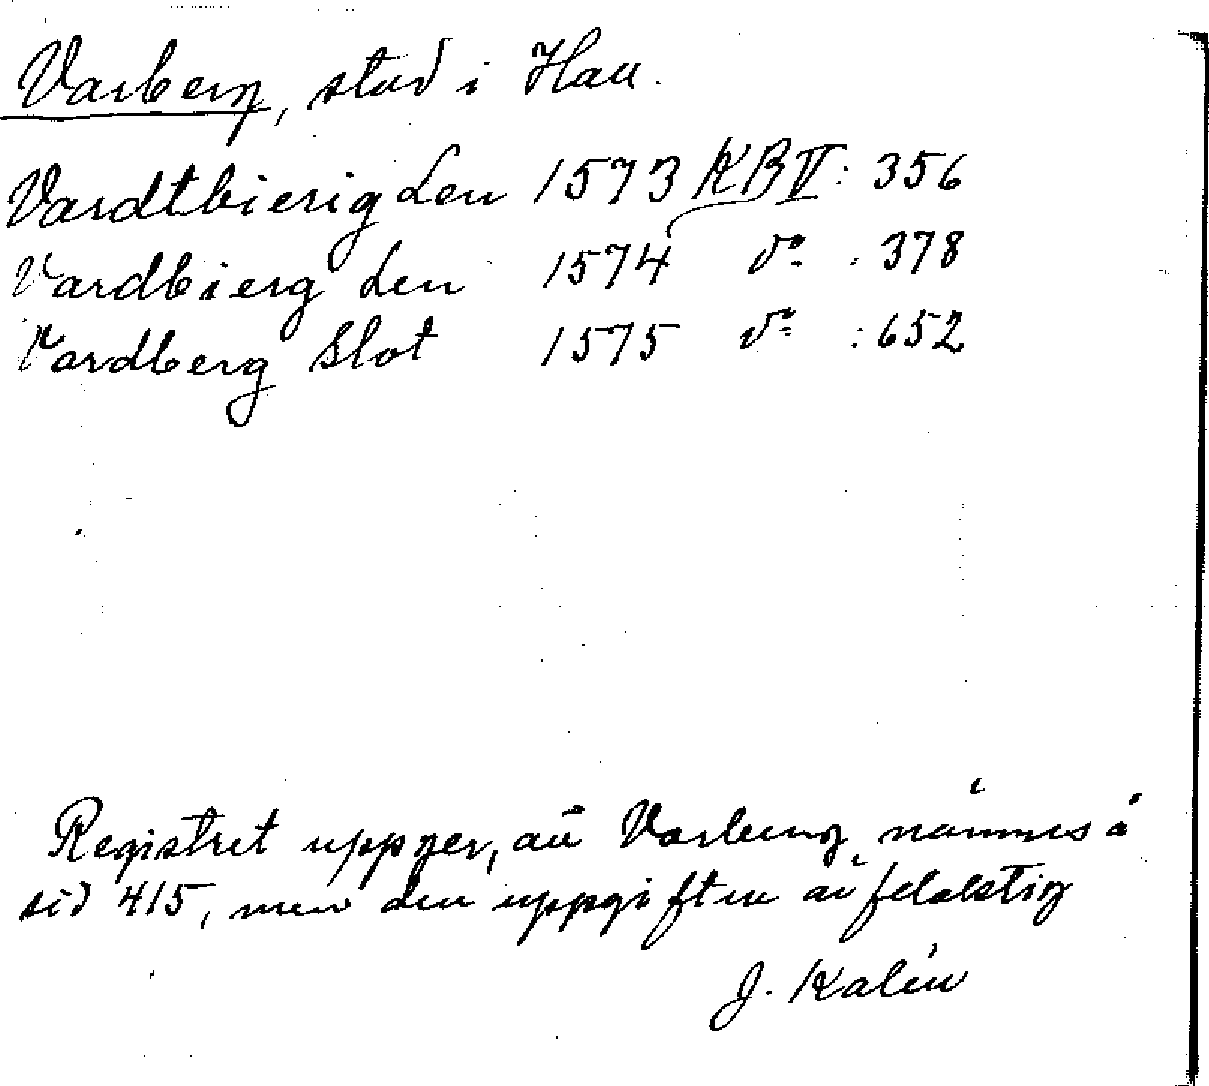 Varberg, stad i Hall.
Vardtbierig Len 1573 KB V: 356
Vardbierg Len 1574 do : 378
Vardberg Slot 1575 do : 652
Registret uppger, att Varberg nämnes å
sid 415, men den uppgiften är felaktig
J. Kalén